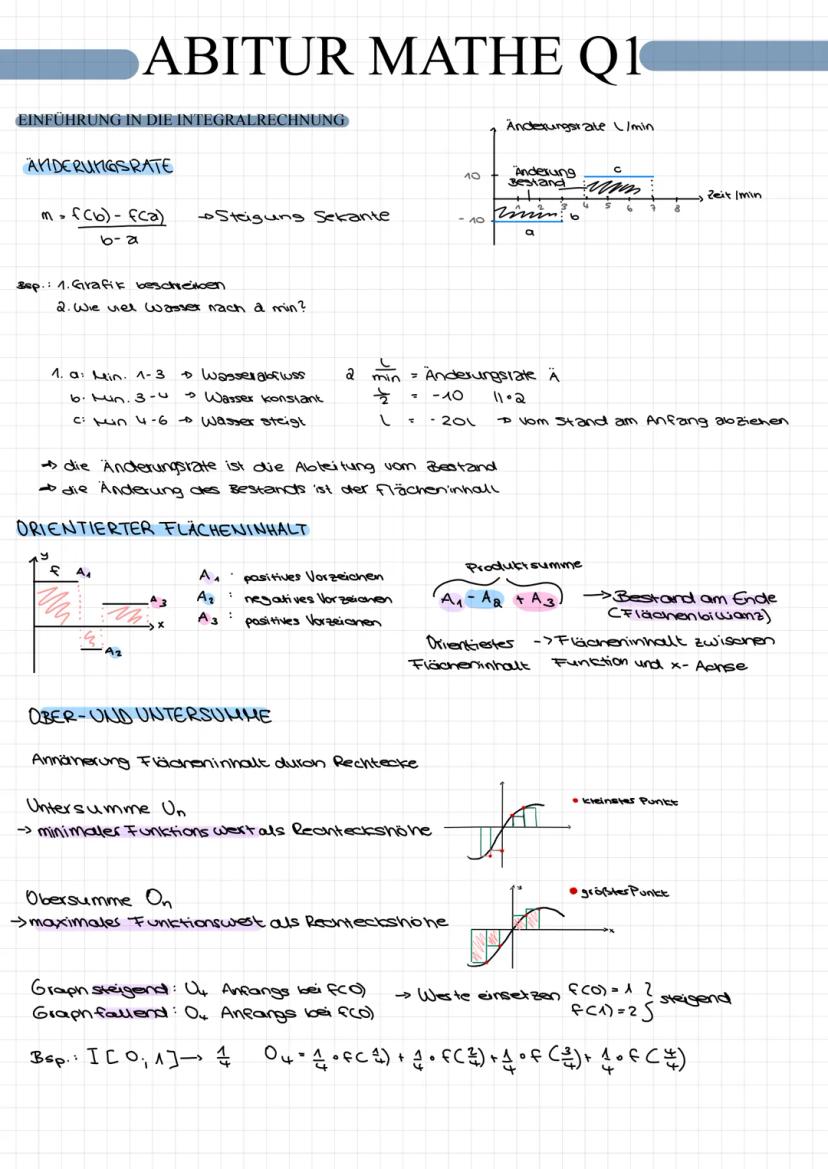 ABITUR MATHE Q1
EINFÜHRUNG IN DIE INTEGRALRECHNUNG
ÄNDERUNGSRATE
m = f(b) - f(a) / b-a → Steigung Sekante
Änderungsrate L/min
10
Änderung Bestand
c
1 2 3 4 5 6 7 8
Zeit/min
-10
b
a
Bsp.: 1. Grafik beschreiben
2. Wie viel Wasser nach 2 min?
1. a: Min. 1-3 → Wasserabfluss
b: Min. 3-4 → Wasser konstant
c: Min 4-6 → Wasser steigt
2 L/min = Änderungsrate Ä
L/2 = -10 ||•2
L = -20L → vom Stand am Anfang abziehen
→ die Änderungsrate ist die Ableitung vom Bestand
→ die Änderung des Bestands ist der Flächeninhalt
ORIENTIERTER FLÄCHENINHALT
y
f A₁
A₃
x
A₂
A₁ : positives Vorzeichen
A₂ : negatives Vorzeichen
A₃ : positives Vorzeichen
Produktsumme
(A₁ - A₂ + A₃) → Bestand am Ende
(Flächenbilanz)
Orientierter -> Flächeninhalt zwischen
Flächeninhalt Funktion und x-Achse
OBER- UND UNTERSUMME
Annäherung Flächeninhalt durch Rechtecke
Untersumme Uₙ
-> minimaler Funktionswert als Rechteckshöhe
• kleinster Punkt
Obersumme Oₙ
-> maximaler Funktionswert als Rechteckshöhe
• größter Punkt
x
Graph steigend: U₄ Anfangs bei f(0)
Graph fallend: O₄ Anfangs bei f(0)
→ Werte einsetzen f(0) = 1
f(1) = 2 } steigend
Bsp.: I[0;1] → 1/4 O₄ = 1/4 • f(1/4) + 1/4 • f(2/4) + 1/4 • f(3/4) + 1/4 • f(4/4)